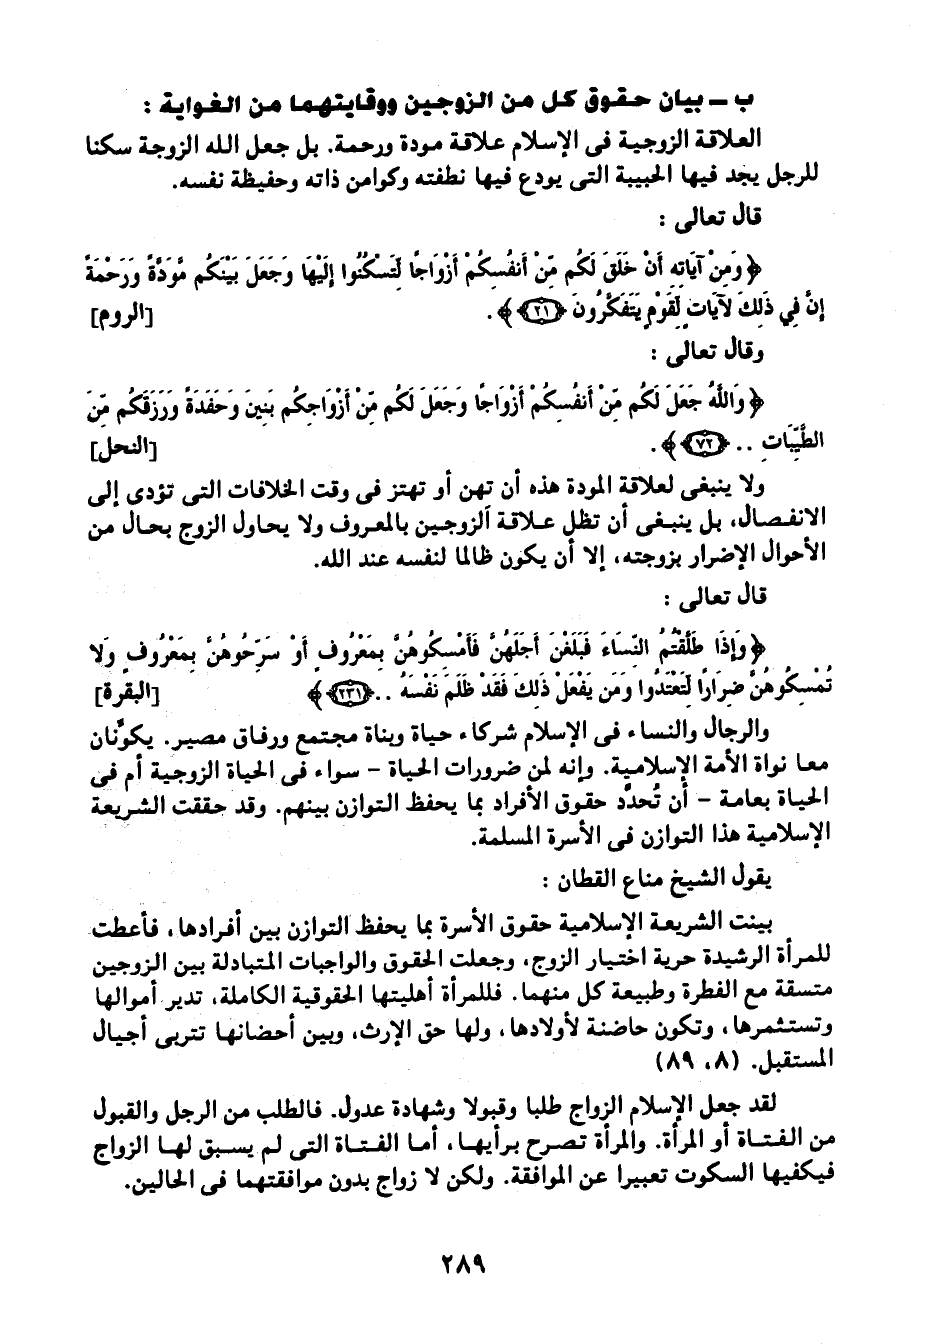 ب ــ بيان حقوق كل من الزوجين ووقايتهما من الغواية :
العلاقة الزوجية فى الإسلام علاقة مودة ورحمة. بل جعل الله الزوجة سكنا
للرجل يجد فيها الحبيبة التى يودع فيها نطفته وكوامن ذاته وحفيظة نفسه.
قال تعالى :
﴿ وَمِنْ آيَاتِهِ أَنْ خَلَقَ لَكُم مِّنْ أَنفُسِكُمْ أَزْوَاجًا لِّتَسْكُنُوا إِلَيْهَا وَجَعَلَ بَيْنَكُم مَّوَدَّةً وَرَحْمَةً
إِنَّ فِي ذَلِكَ لآيَاتٍ لِّقَوْمٍ يَتَفَكَّرُونَ ﴿٢١﴾ ﴾ . [الروم]
وقال تعالى :
﴿ وَاللَّهُ جَعَلَ لَكُم مِّنْ أَنفُسِكُمْ أَزْوَاجًا وَجَعَلَ لَكُم مِّنْ أَزْوَاجِكُم بَنِينَ وَحَفَدَةً وَرَزَقَكُم مِّنَ
الطَّيِّبَاتِ .. ﴿٧٢﴾ ﴾ . [النحل]
ولا ينبغى لعلاقة المودة هذه أن تهن أو تهتز فى وقت الخلافات التى تؤدى إلى
الانفصال، بل ينبغى أن تظل علاقة الزوجين بالمعروف ولا يحاول الزوج بحال من
الأحوال الإضرار بزوجته، إلا أن يكون ظالما لنفسه عند الله.
قال تعالى :
﴿ وَإِذَا طَلَّقْتُمُ النِّسَاءَ فَبَلَغْنَ أَجَلَهُنَّ فَأَمْسِكُوهُنَّ بِمَعْرُوفٍ أَوْ سَرِّحُوهُنَّ بِمَعْرُوفٍ وَلا
تُمْسِكُوهُنَّ ضِرَارًا لِّتَعْتَدُوا وَمَن يَفْعَلْ ذَلِكَ فَقَدْ ظَلَمَ نَفْسَهُ .. ﴿٢٣١﴾ ﴾ [البقرة]
والرجال والنساء فى الإسلام شركاء حياة وبناة مجتمع ورفاق مصير. يكوِّنان
معا نواة الأمة الإسلامية. وإنه لمن ضرورات الحياة – سواء فى الحياة الزوجية أم فى
الحياة بعامة – أن تُحدَّد حقوق الأفراد بما يحفظ التوازن بينهم. وقد حققت الشريعة
الإسلامية هذا التوازن فى الأسرة المسلمة.
يقول الشيخ مناع القطان :
بينت الشريعة الإسلامية حقوق الأسرة بما يحفظ التوازن بين أفرادها، فأعطت
للمرأة الرشيدة حرية اختيار الزوج، وجعلت الحقوق والواجبات المتبادلة بين الزوجين
متسقة مع الفطرة وطبيعة كل منهما. فللمرأة أهليتها الحقوقية الكاملة، تدير أموالها
وتستثمرها، وتكون حاضنة لأولادها، ولها حق الإرث، وبين أحضانها تتربى أجيال
المستقبل. (٨، ٨٩)
لقد جعل الإسلام الزواج طلبا وقبولا وشهادة عدول. فالطلب من الرجل والقبول
من الفتاة أو المرأة. والمرأة تصرح برأيها، أما الفتاة التى لم يسبق لها الزواج
فيكفيها السكوت تعبيرا عن الموافقة. ولكن لا زواج بدون موافقتهما فى الحالين.
٢٨٩